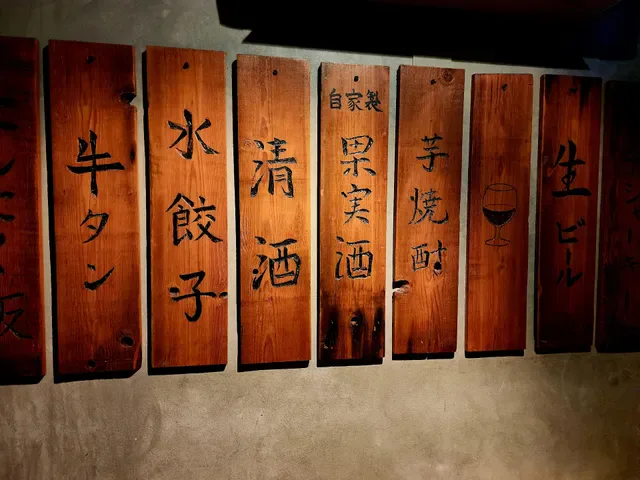 牛タン
水餃子
清酒
自家製
果実酒
芋焼酎
生ビール